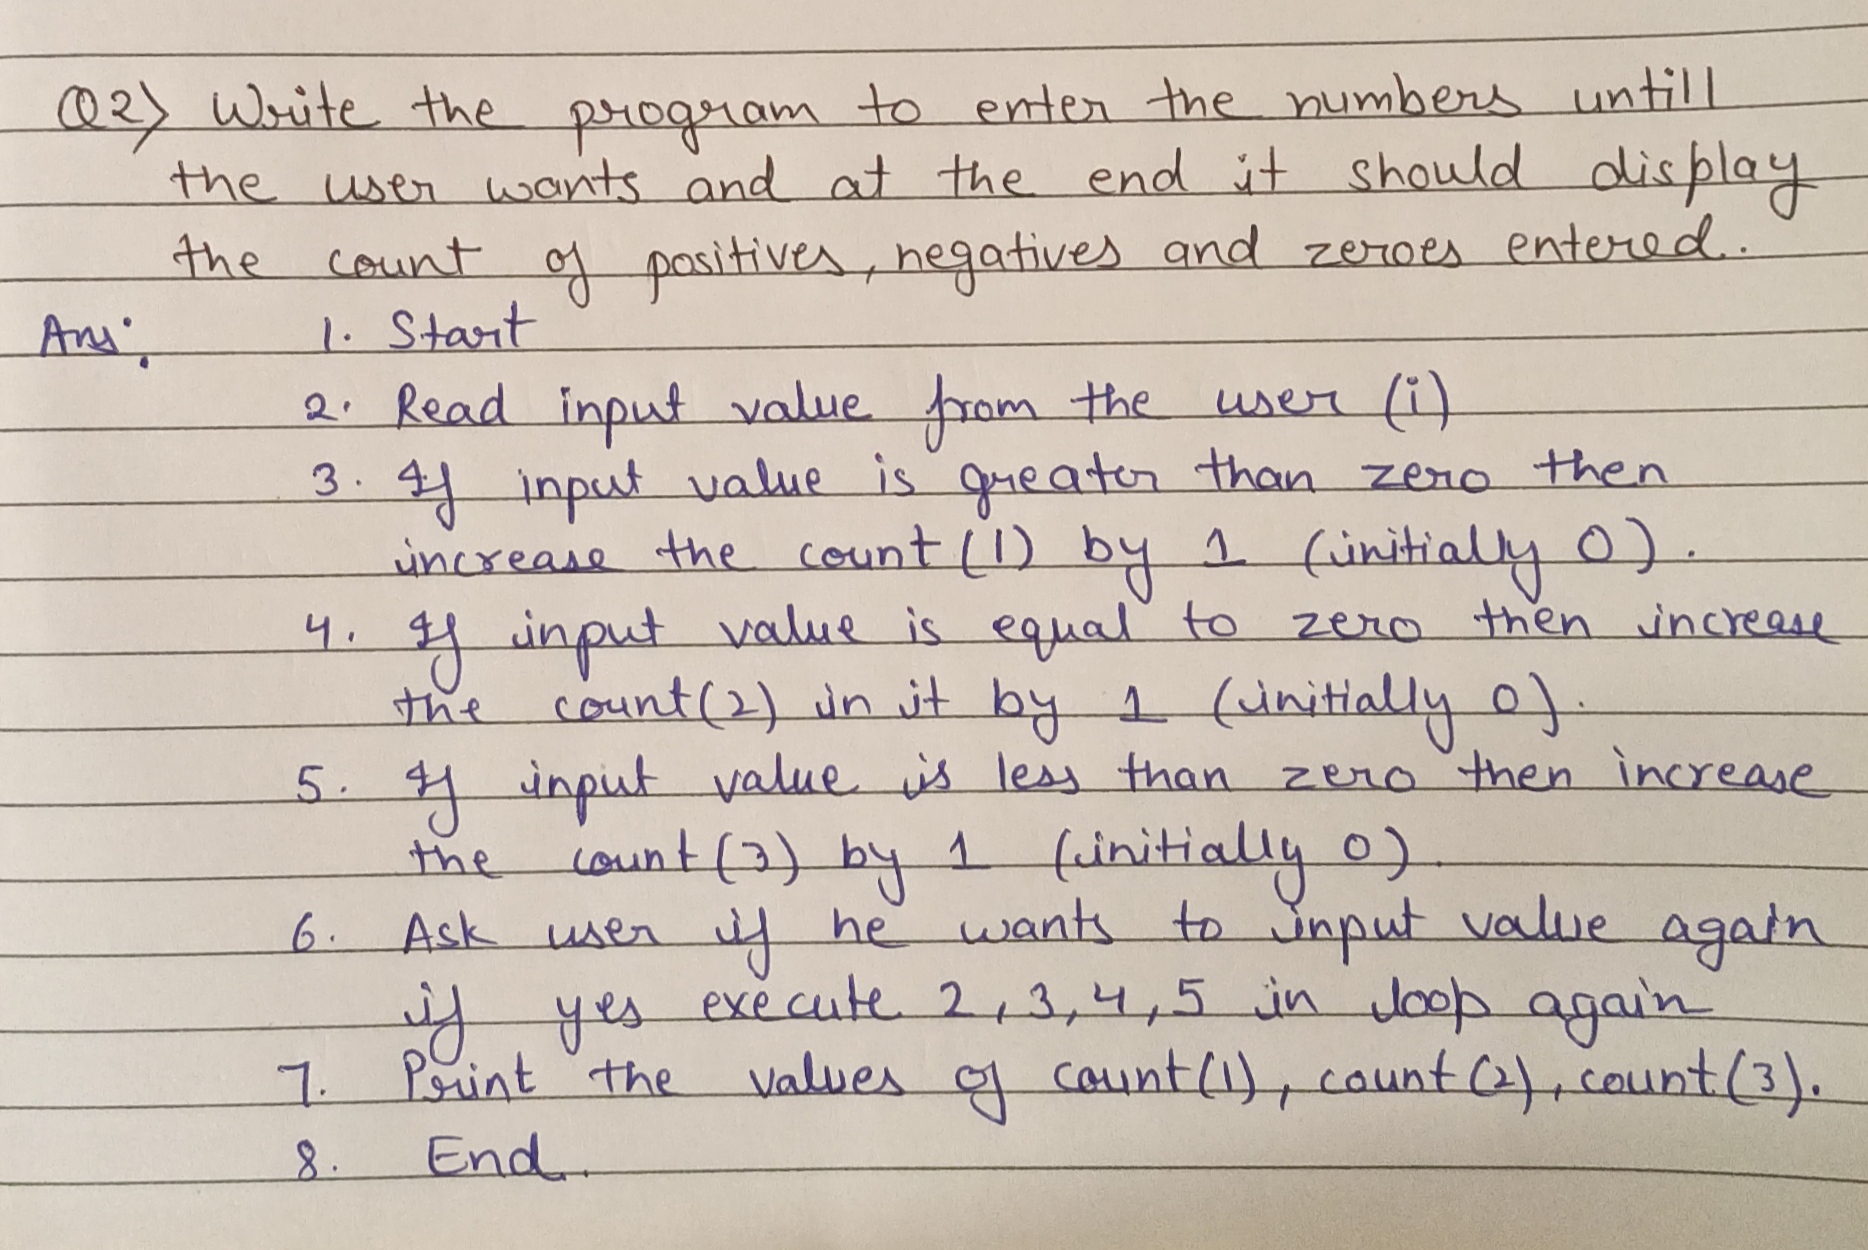 Q2) Write the program to enter the numbers untill
the user wants and at the end it should display
the count of positives, negatives and zeroes entered.
Ans: 1. Start
2. Read input value from the user (i)
3. If input value is greater than zero then
increase the count (1) by 1 (initially 0).
4. If input value is equal to zero then increase
the count(2) in it by 1 (initially 0).
5. If input value is less than zero then increase
the count (3) by 1 (initially 0).
6. Ask user if he wants to input value again
if yes execute 2, 3, 4, 5 in loop again
7. Print the values of count(1), count (2), count (3).
8. End.